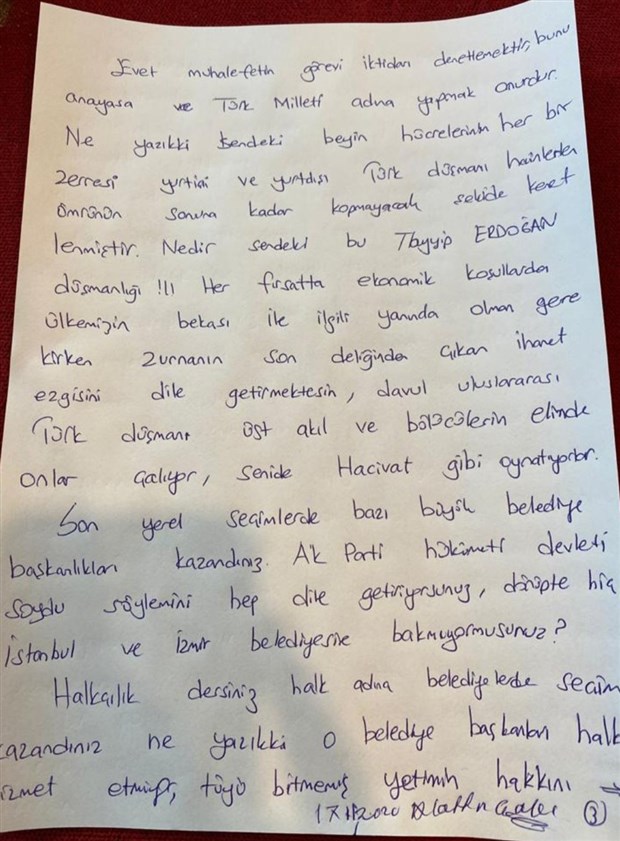 Evet muhalefetin görevi iktidarı denetlemektir, bunu
anayasa ve Türk Milleti adına yapmak onurdur.
Ne yazıkki sendeki beyin hücrelerinin her bir
zerresi yurtiçi ve yurtdışı Türk düşmanı hainlerden
ömrünün sonuna kadar kopmayacak şekilde kenet
lenmiştir. Nedir sendeki bu Tayyip ERDOĞAN
düşmanlığı !!! Her fırsatta ekonomik koşullarda
ülkemizin bekası ile ilgili yanında olman gere
kirken zurnanın son deliğinden çıkan ihanet
ezgisini dile getirmektesin, davul uluslararası
Türk düşmanı üst akıl ve bölücülerin elinde
onlar çalıyor, senide Hacivat gibi oynatıyorlar.
Son yerel seçimlerde bazı büyük belediye
başkanlıkları kazandınız. Ak Parti hükümeti devleti
soydu söylemini hep dile getiriyorsunuz, dönüpte hiç
İstanbul ve İzmir belediyesine bakmıyormusunuz?
Halkçılık dersiniz halk adına belediyelerde seçim
kazandınız ne yazıkki o belediye başkanları halk
hizmet etmiyor, tüyü bitmemiş yetimin hakkını →
2020 3